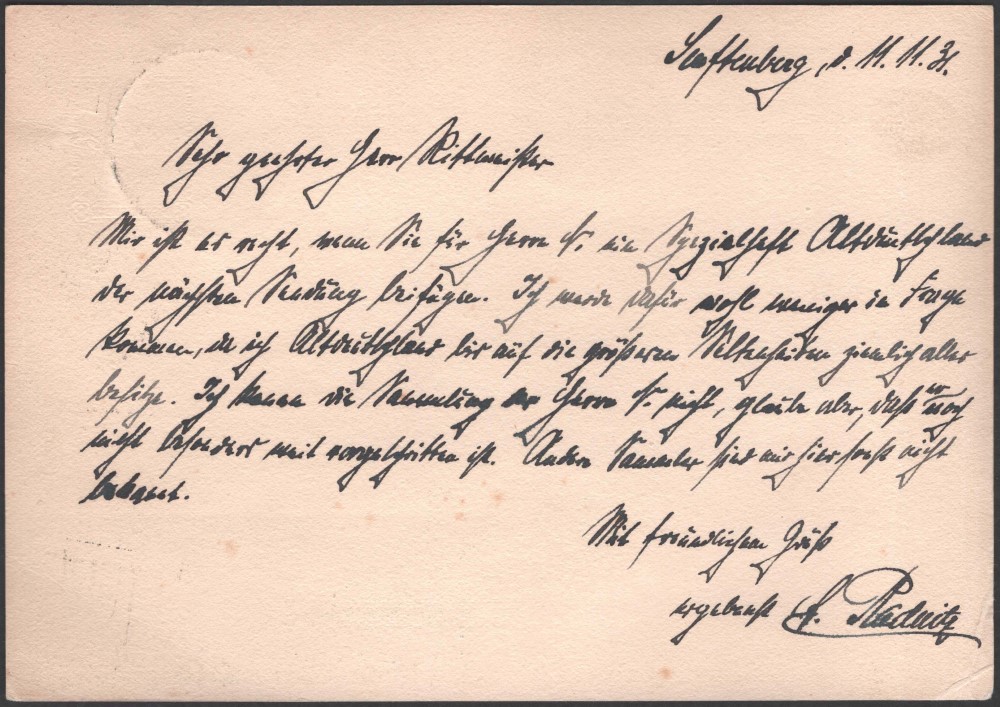 Senftenberg, d. 11.11.31.
Sehr geehrter Herr Rittmeister
Mir ist es recht, wenn Sie für Herrn N. ein Spezialheft Altdeutschland
der nächsten Sendung beifügen. Ich werde dafür wohl weniger in Frage
kommen, da ich Altdeutschland bis auf die größeren Seltenheiten ziemlich alles
besitze. Ich kenne die Sammlung Herrn N. nicht, glaube aber, daß er noch
nicht besonders weit vorgeschritten ist. Andere Sammler sind mir hier sonst nicht
bekannt.
Mit freundlichem Gruß
ergebenst